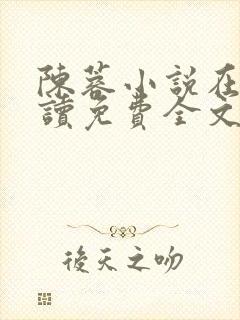 陳蓉小說在
讀免費全文
後天之吻